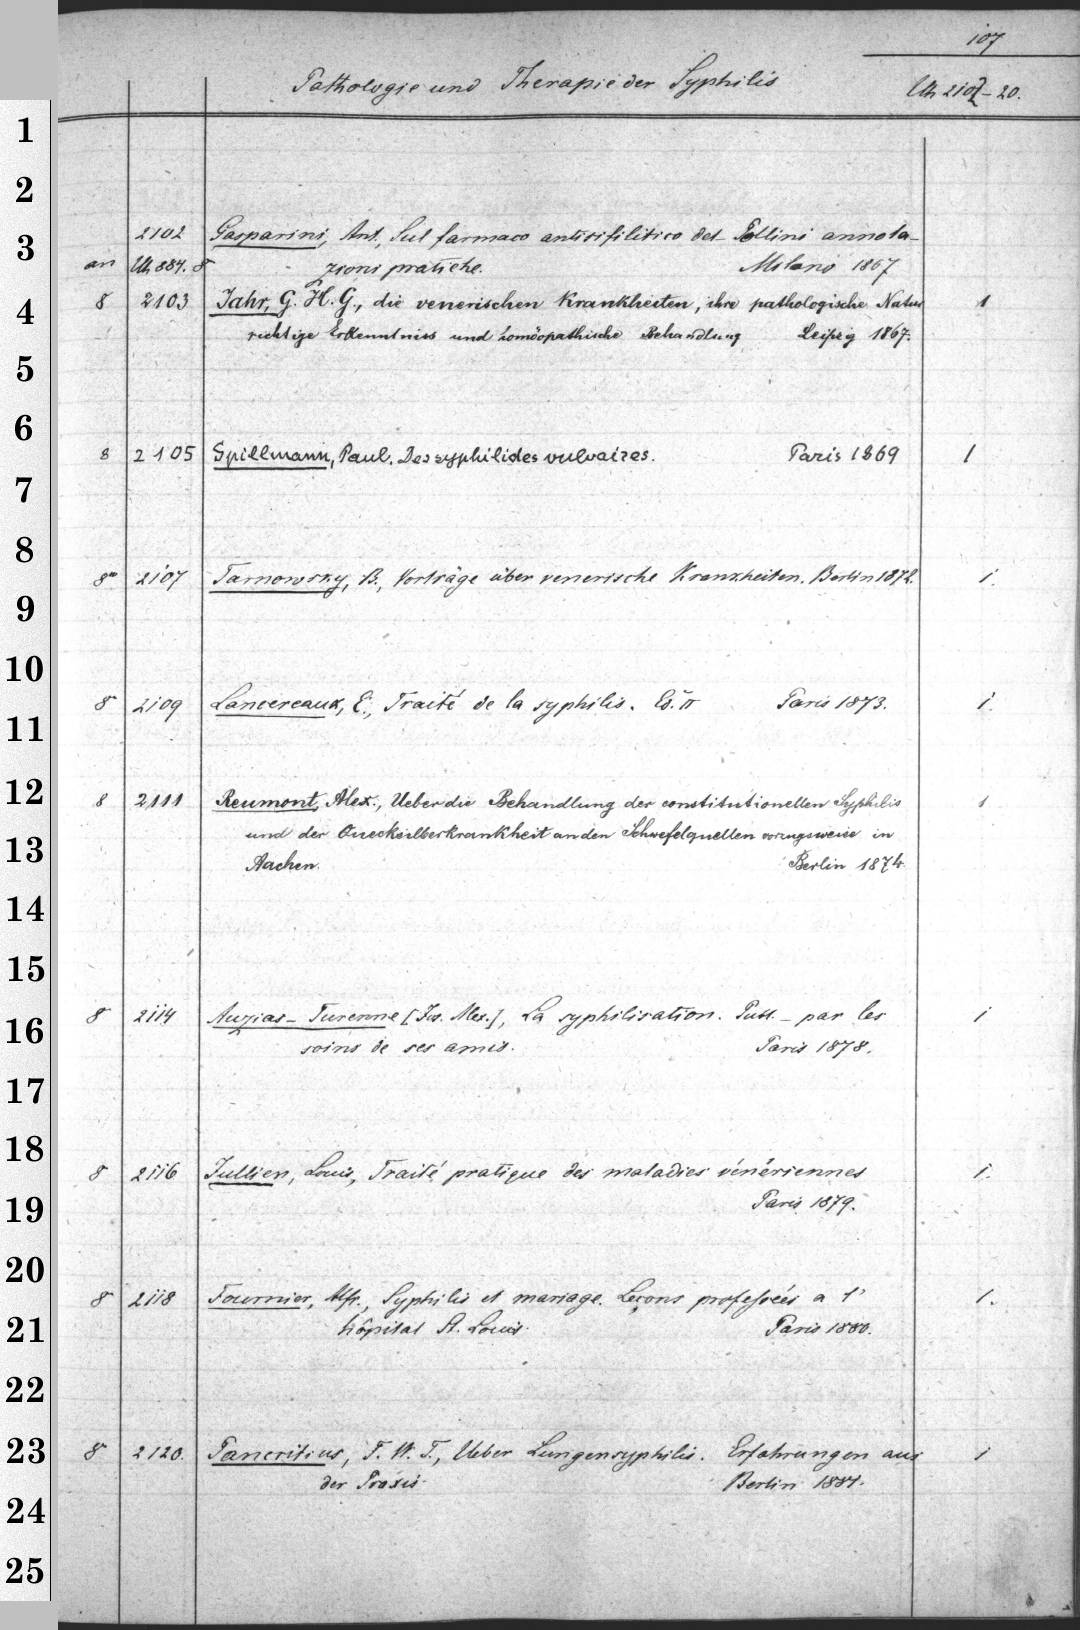 107
Pathologie und Therapie der Syphilis Uh 2102-20.
1
2
3 2102 Gasparini, Ant. Sul farmaco antisifilitico del Pollini annota-
an Uh 884. 8 zioni pratiche. Milano 1867
4 8 2103 Jahr, G. H. G., die venerischen Krankheiten, ihre pathologische Natur 1
richtige Erkenntniss und homöopathische Behandlung Leipzig 1867.
5
6
8 2105 Spillmann, Paul. Des syphilides vulvaires. Paris 1869 1
7
8
8° 2107 Tarnowsky, B., Vorträge über venerische Krankheiten. Berlin 1872. 1.
9
10
8 2109 Lancereaux, E., Traité de la syphilis. Ed. II Paris 1873. 1.
11
12 8 2111 Reumont, Alex., Ueber die Behandlung der constitutionellen Syphilis 1
und der Quecksilberkrankheit an den Schwefelquellen vorzugsweise in
13 Aachen. Berlin 1874.
14
15
16 8 2114 Auzias-Turenne [Jos. Alex.], La syphilisation. Publ. par les 1
soins de ses amis. Paris 1878.
17
18
8 2116 Jullien, Louis, Traité pratique des maladies vénériennes 1.
19 Paris 1879.
20
8 2118 Fournier, Alfr., Syphilis et mariage. Leçons professées a l' 1.
21 hôpital St. Louis. Paris 1880.
22
23 8 2120. Pancritius, F. W. T., Ueber Lungensyphilis. Erfahrungen aus 1
der Praxis. Berlin 1881.
24
25